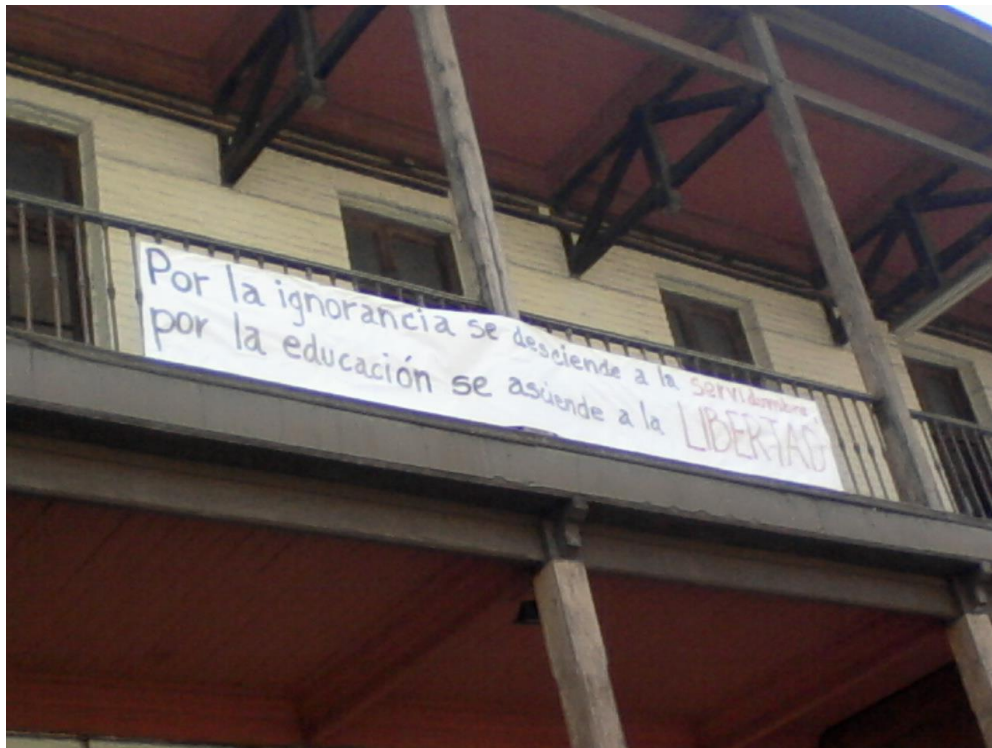 Por la ignorancia se desciende a la servidumbre,
por la educación se asciende a la LIBERTAD